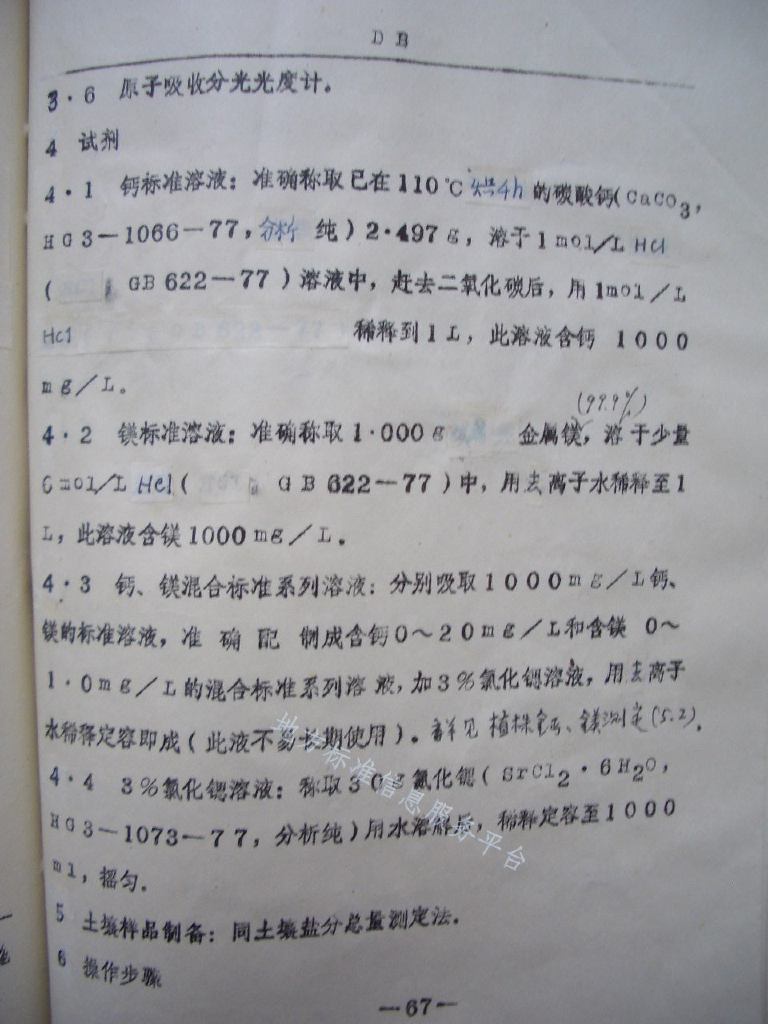 DB
3·6 原子吸收分光光度计。
4 试剂
4·1 钙标准溶液：准确称取已在110℃烘4h的碳酸钙(CaCO3,
HG3—1066—77,分析纯)2·497g，溶于1mol/L HCl
( GB622—77)溶液中，赶去二氧化碳后，用1mol/L
HCl 稀释到1L，此溶液含钙 1000
mg/L。
(99.9%)
4·2 镁标准溶液：准确称取1·000g 金属镁，溶于少量
6mol/L HCl( GB622—77)中，用去离子水稀释至1
L，此溶液含镁1000mg/L。
4·3 钙、镁混合标准系列溶液：分别吸取1000mg/L钙、
镁的标准溶液，准确配制成含钙0～20mg/L和含镁 0～
1·0mg/L的混合标准系列溶液，加3%氯化锶溶液，用去离子
水稀释定容即成(此液不易长期使用)。详见植株钙、镁测定(5.2).
4·4 3%氯化锶溶液：称取30g氯化锶(SrCl2·6H2O,
HG3—1073—77，分析纯)用水溶解后，稀释定容至1000
ml，摇匀.
5 土壤样品制备：同土壤盐分总量测定法.
6 操作步骤
—67—
地方标准信息服务平台